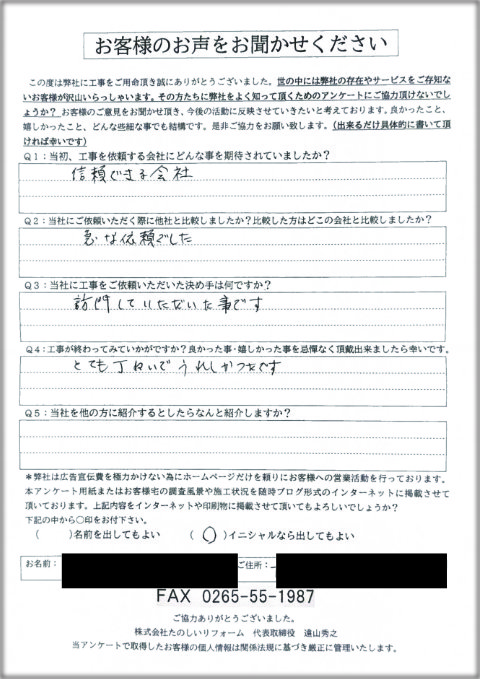 お客様のお声をお聞かせください
この度は弊社に工事をご用命頂き誠にありがとうございました。世の中には弊社の存在やサービスをご存知な
いお客様が沢山いらっしゃいます。その方たちに弊社をよく知って頂くためのアンケートにご協力頂けないでし
ょうか？ お客様のご意見をお聞かせ頂き、今後の活動に反映させていきたいと考えております。良かったこと、
嬉しかったこと、どんな些細な事でも結構です。是非ご協力をお願い致します。(出来るだけ具体的に書いて頂
ければ幸いです)
Q1：当初、工事を依頼する会社にどんな事を期待されていましたか？
信頼できる会社
Q2：当社にご依頼いただく際に他社と比較しましたか？比較した方はどこの会社と比較しましたか？
急な依頼でした
Q3：当社に工事をご依頼いただいた決め手は何ですか？
訪門していただいた事です
Q4：工事が終わってみていかがですか？良かった事・嬉しかった事を忌憚なく頂戴出来ましたら幸いです。
とても丁ねいでうれしかったです
Q5：当社を他の方に紹介するとしたらなんと紹介しますか？
＊弊社は広告宣伝費を極力かけない為にホームページだけを頼りにお客様への営業活動を行っております。
本アンケート用紙またはお客様宅の調査風景や施工状況を随時ブログ形式のインターネットに掲載させて
頂いております。上記内容をインターネットや印刷物に掲載させて頂いてもよろしいでしょうか？
下記の中から〇印をお付下さい。
（　　）名前を出してもよい　　（ ○ ）イニシャルなら出してもよい
お名前：　ご住所：
FAX 0265-55-1987
ご協力ありがとうございました。
株式会社たのしいリフォーム　代表取締役　遠山秀之
当アンケートで取得したお客様の個人情報は関係法規に基づき厳正に管理いたします。